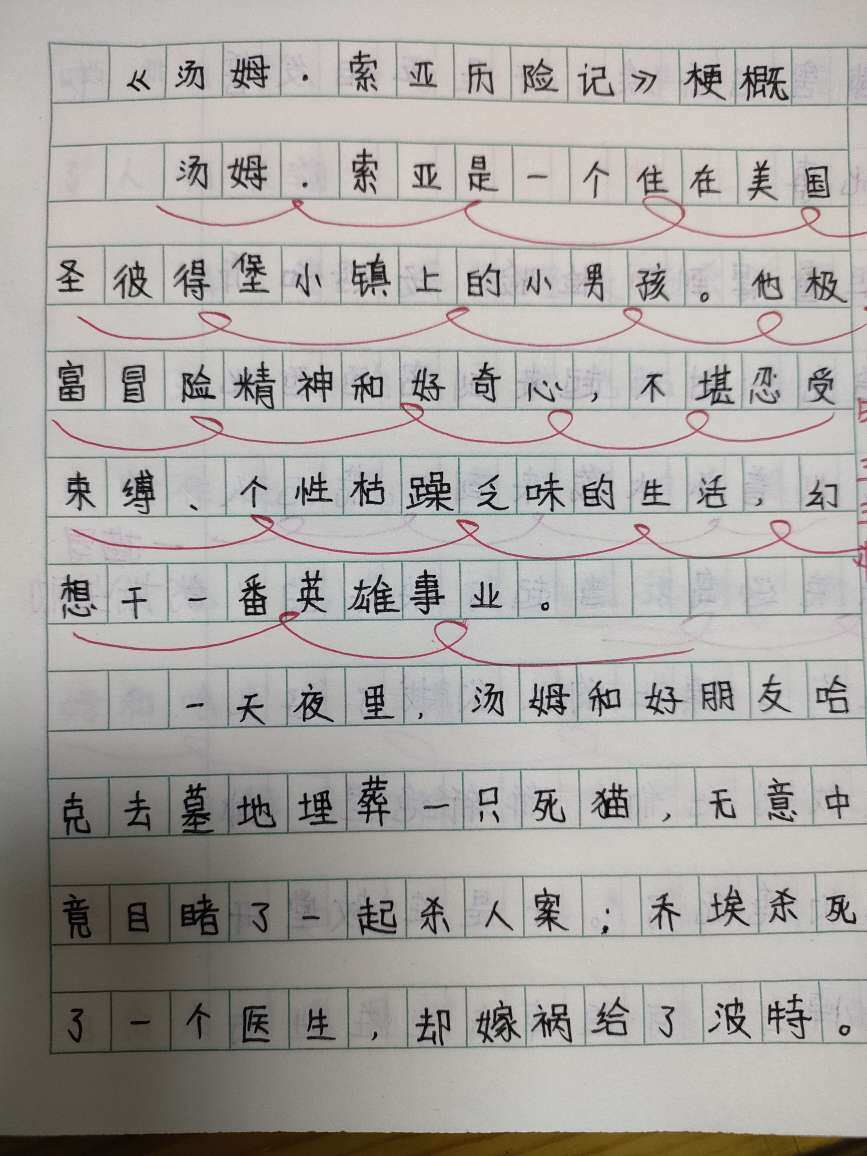 《汤姆·索亚历险记》梗概
汤姆·索亚是一个住在美国
圣彼得堡小镇上的小男孩。他极
富冒险精神和好奇心，不堪忍受
束缚、个性枯躁乏味的生活，幻
想干一番英雄事业。
一天夜里，汤姆和好朋友哈
克去墓地埋葬一只死猫，无意中
竟目睹了一起杀人案；乔埃杀死
了一个医生，却嫁祸给了波特。